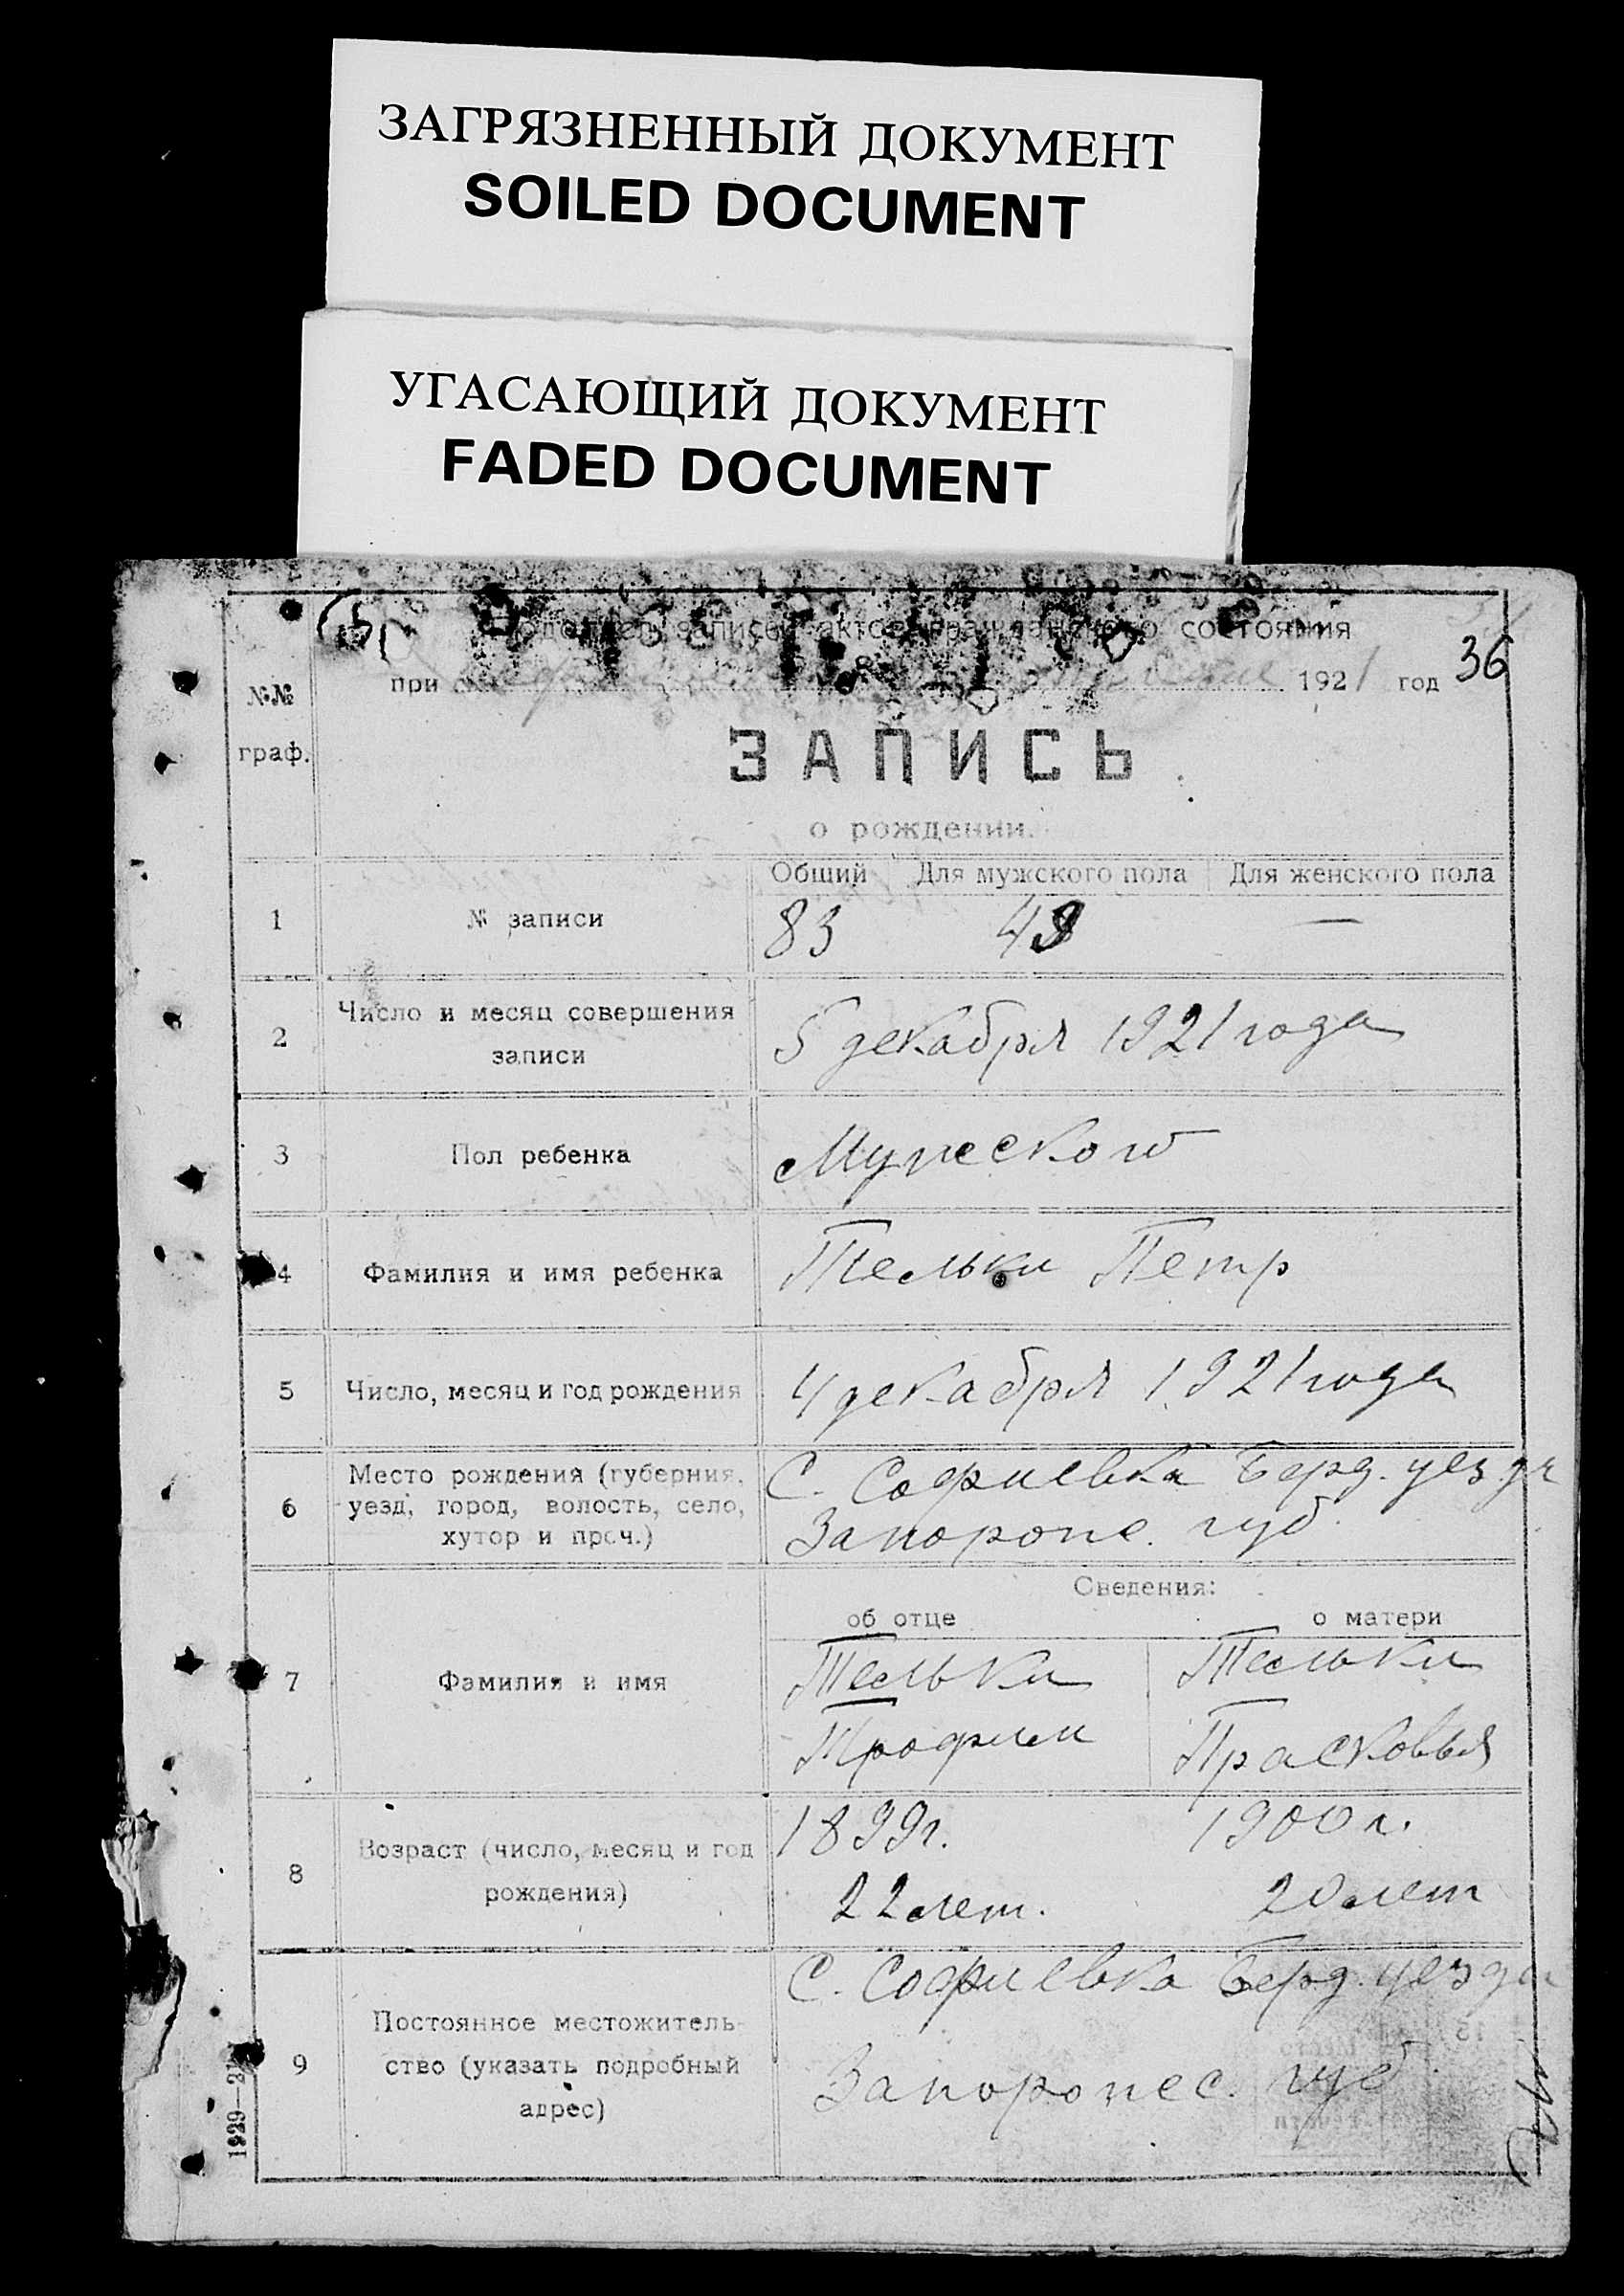 ЗАГРЯЗНЕННЫЙ ДОКУМЕНТ
SOILED DOCUMENT
УГАСАЮЩИЙ ДОКУМЕНТ
FADED DOCUMENT
записей актов гражданского состояния
36
при 1921 год
№№
граф.
ЗАПИСЬ
о рождении.
Общий Для мужского пола Для женского пола
1 № записи 83 49 —
2 Число и месяц совершения
записи 5 декабря 1921 года
3 Пол ребенка Мужеского
4 Фамилия и имя ребенка Петр
5 Число, месяц и год рождения 4 декабря 1921 года
6 Место рождения (губерния, С. Софиевка Берд. уезда
уезд, город, волость, село, Запорож. губ.
хутор и проч.)
Сведения:
об отце о матери
7 Фамилия и имя
Трофим Прасковья
8 Возраст (число, месяц и год 1899г. 1900г.
рождения) 22 лет. 20 лет
9 Постоянное местожитель- С. Софиевка Берд. уезда
ство (указать подробный Запорожс. губ
адрес)